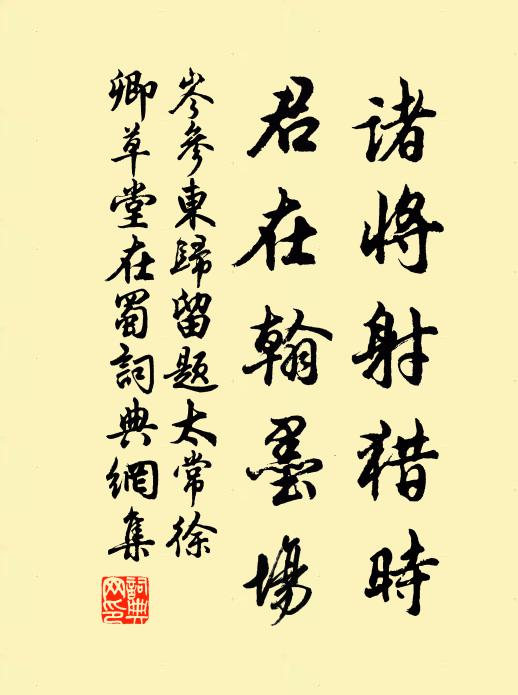 诸将射猎时
君在翰墨场
岑參東歸留題太常徐
卿草堂在蜀詞典網集
詞典网印